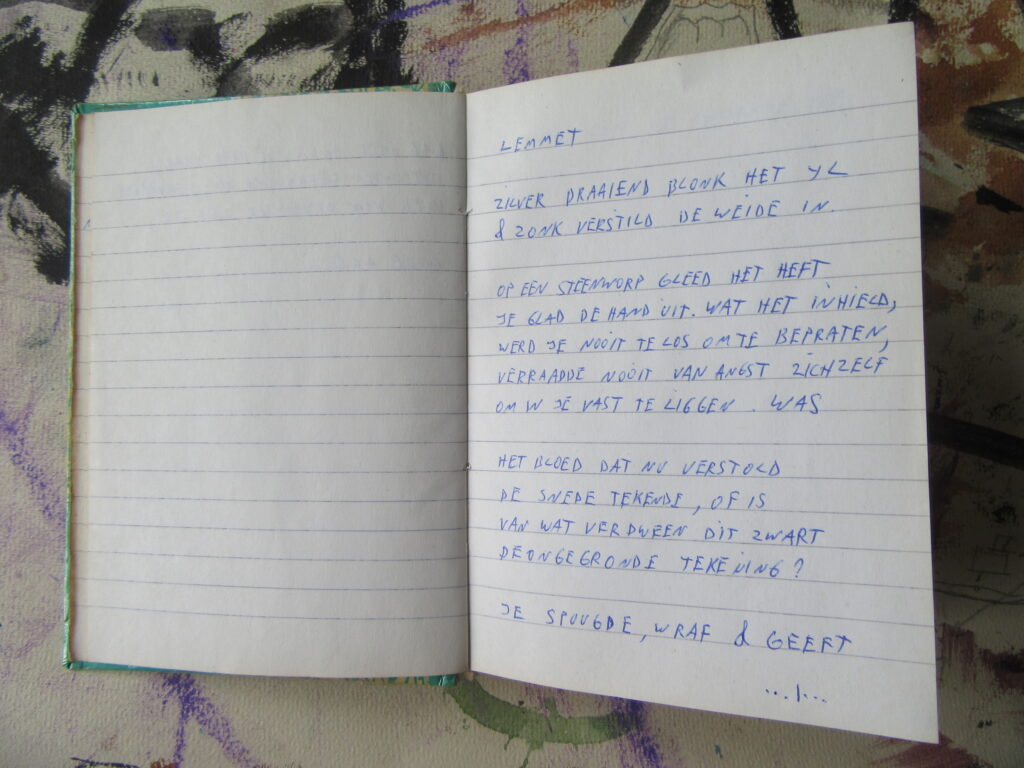 LEMMET
ZILVER DRAAIEND BLONK HET YL
& ZONK VERSTILD DE WEIDE IN.
OP EEN STEENWORP GLEED HET HEFT
JE GLAD DE HAND UIT. WAT HET INHIELD,
WERD JE NOOIT TE LOS OM TE BEPRATEN,
VERRAADDE NOOIT VAN ANGST ZICHZELF
OM IN JE VAST TE LIGGEN. WAS
HET BLOED DAT NU VERSTOLD
DE SNEDE TEKENDE, OF IS
VAN WAT VERDWEEN DIT ZWART
DE ONGEGRONDE TEKENING?
JE SPUUGDE, WRAF & GEEFT
...|...